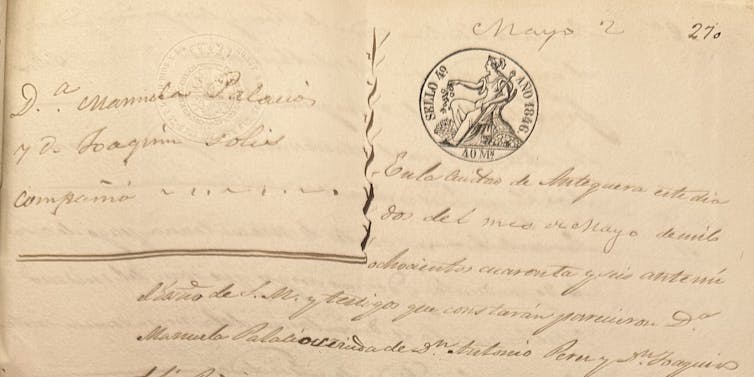 Mayo 2
270
D.ª Manuela Palacios
y Dⁿ Joaquin Solis
compañia
SELLO 4º AÑO 1846
40 Mˢ
En la Ciudad de Antequera este dia
dos del mes de Mayo de mil
ochocientos cuarenta y seis ante mi
Escrño de S. M. y testigos que constarán parecieron D.ª
Manuela Palacios viuda de Dⁿ Antonio Perez y Dⁿ Joaquin